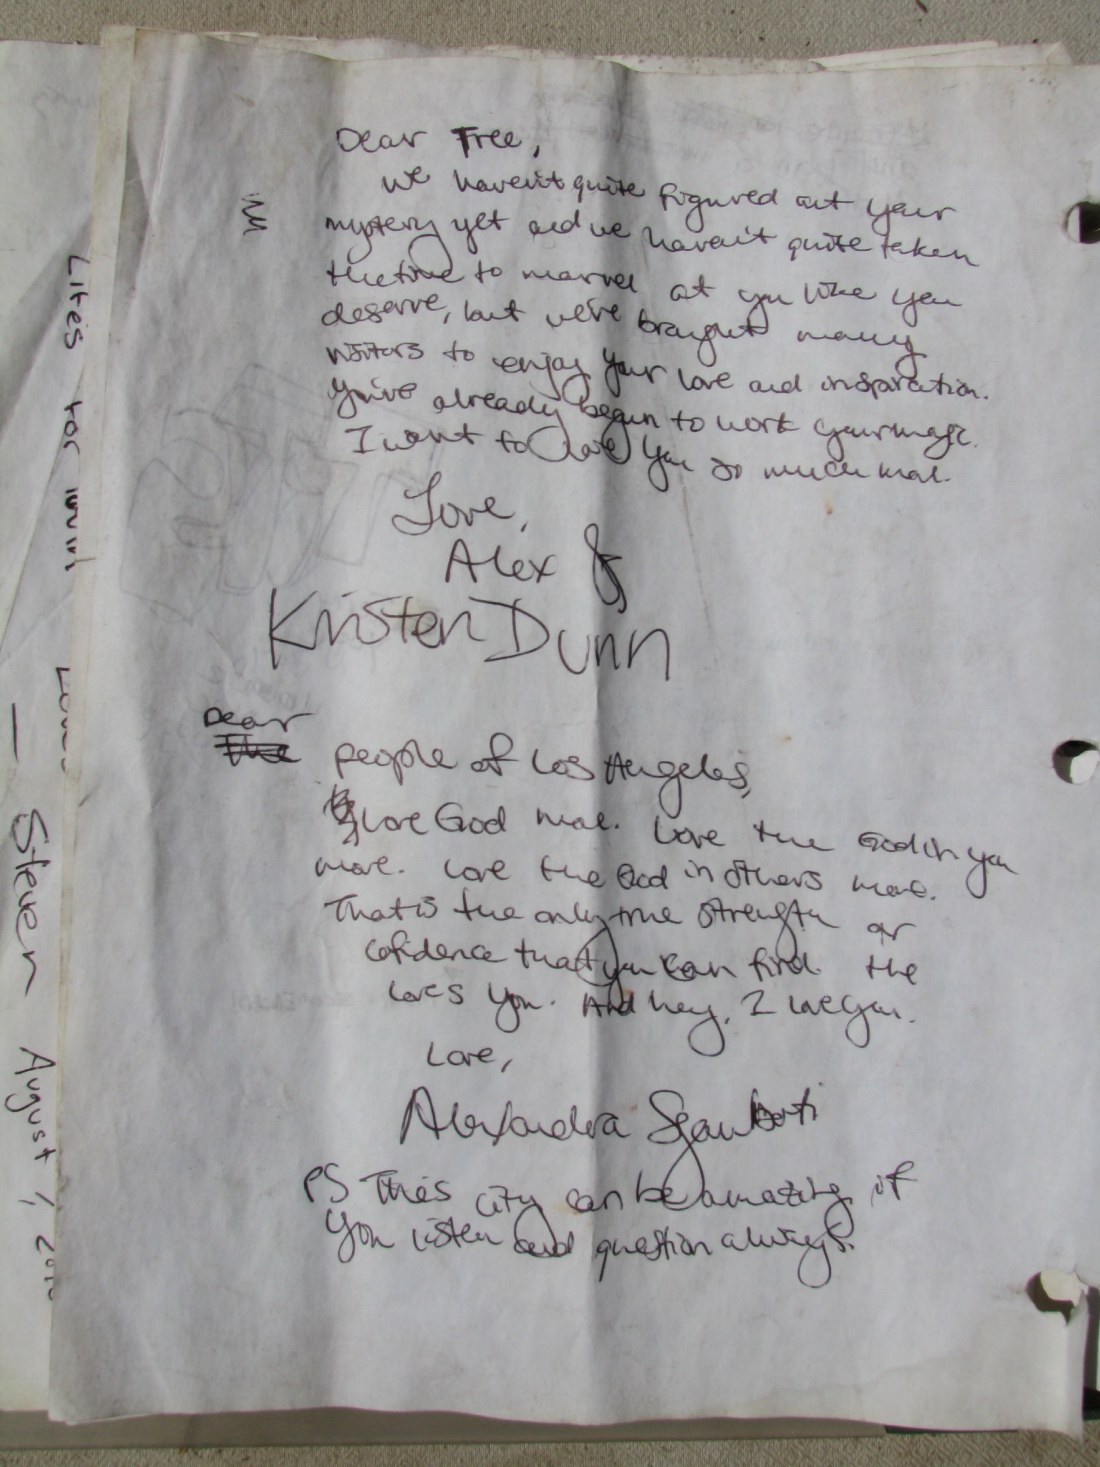 Dear Tree,
We haven't quite figured out your
mystery yet and we haven't quite taken
the time to marvel at you like you
deserve, but we've brought many
visitors to enjoy your love and inspiration.
You've already begun to work your magic.
I want to love you so much more.
Love,
Alex &
Kristen Dunn
Dear
The
people of Los Angeles,
Love God more. Love the God in you
more. Love the God in others more.
That is the only true strength or
cofidence that you can find. He
loves you. And hey, I love you.
Love,
Alexandra
PS This city can be amazing if
you listen and question always.
Lites for
Love
— Steven August 1, 201